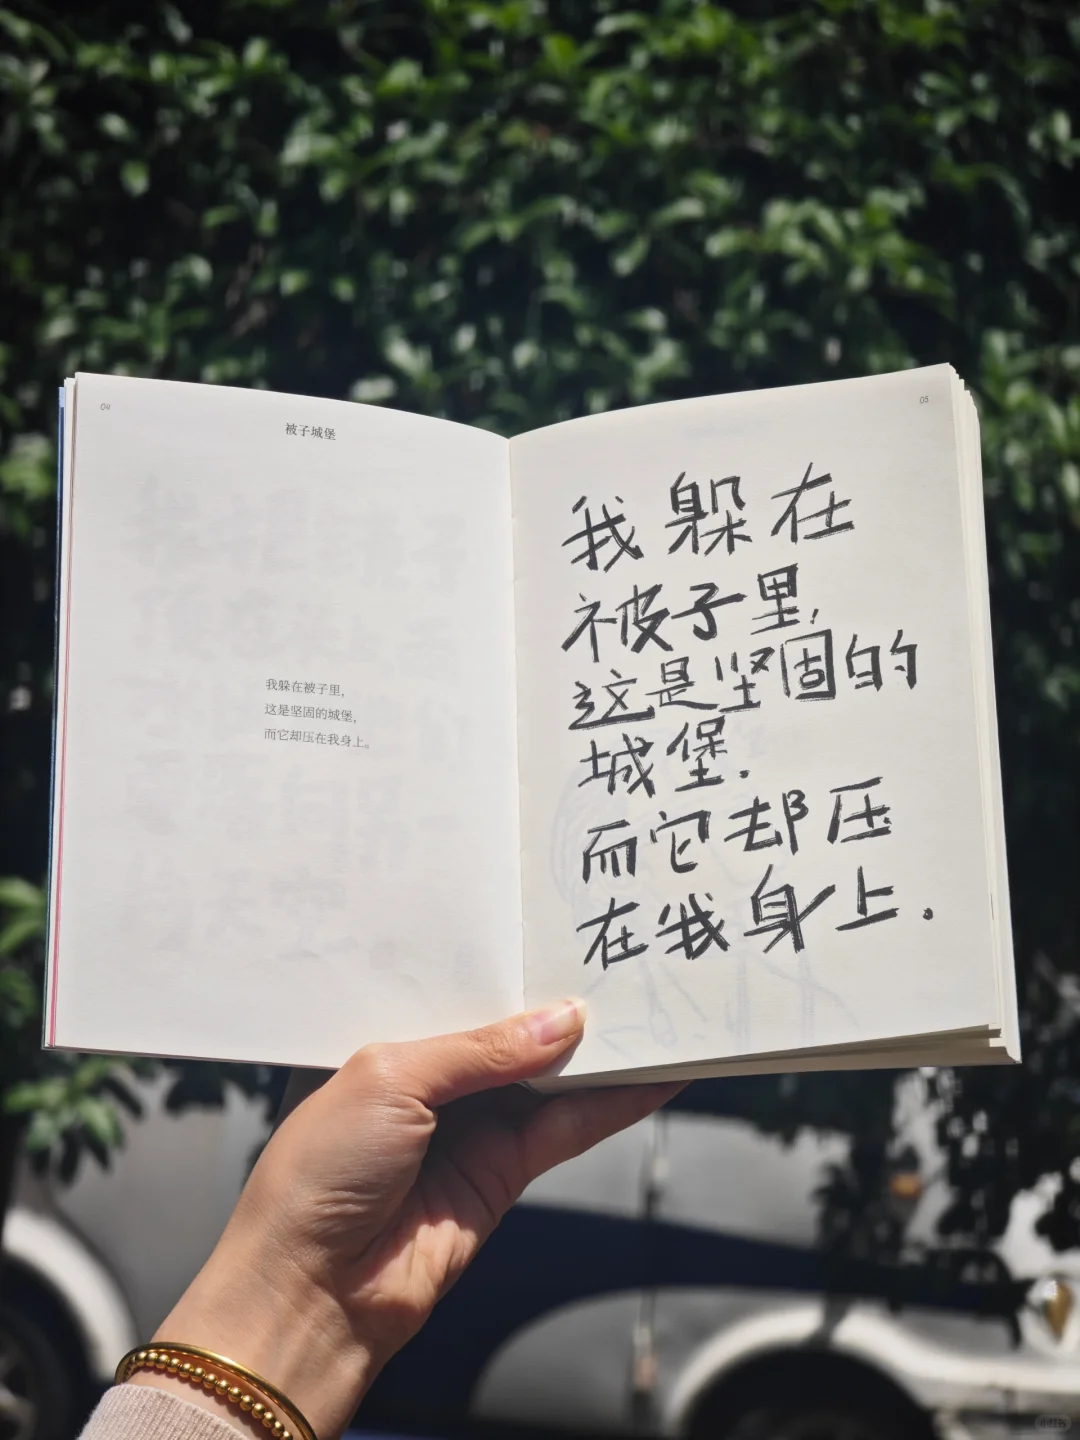 04
被子城堡
我躲在被子里，
这是坚固的城堡，
而它却压在我身上。
05
我躲在
被子里，
这是坚固的
城堡.
而它却压
在我身上.
小红书